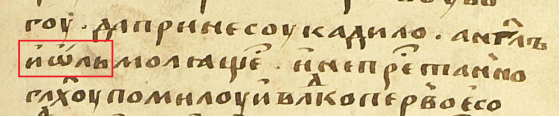 гоу · да принесоу кадило · англ҃ъ
и ѿлы молꙗше · и непрестанно
гл҃хоу помилоуи вл҃ко перво есо